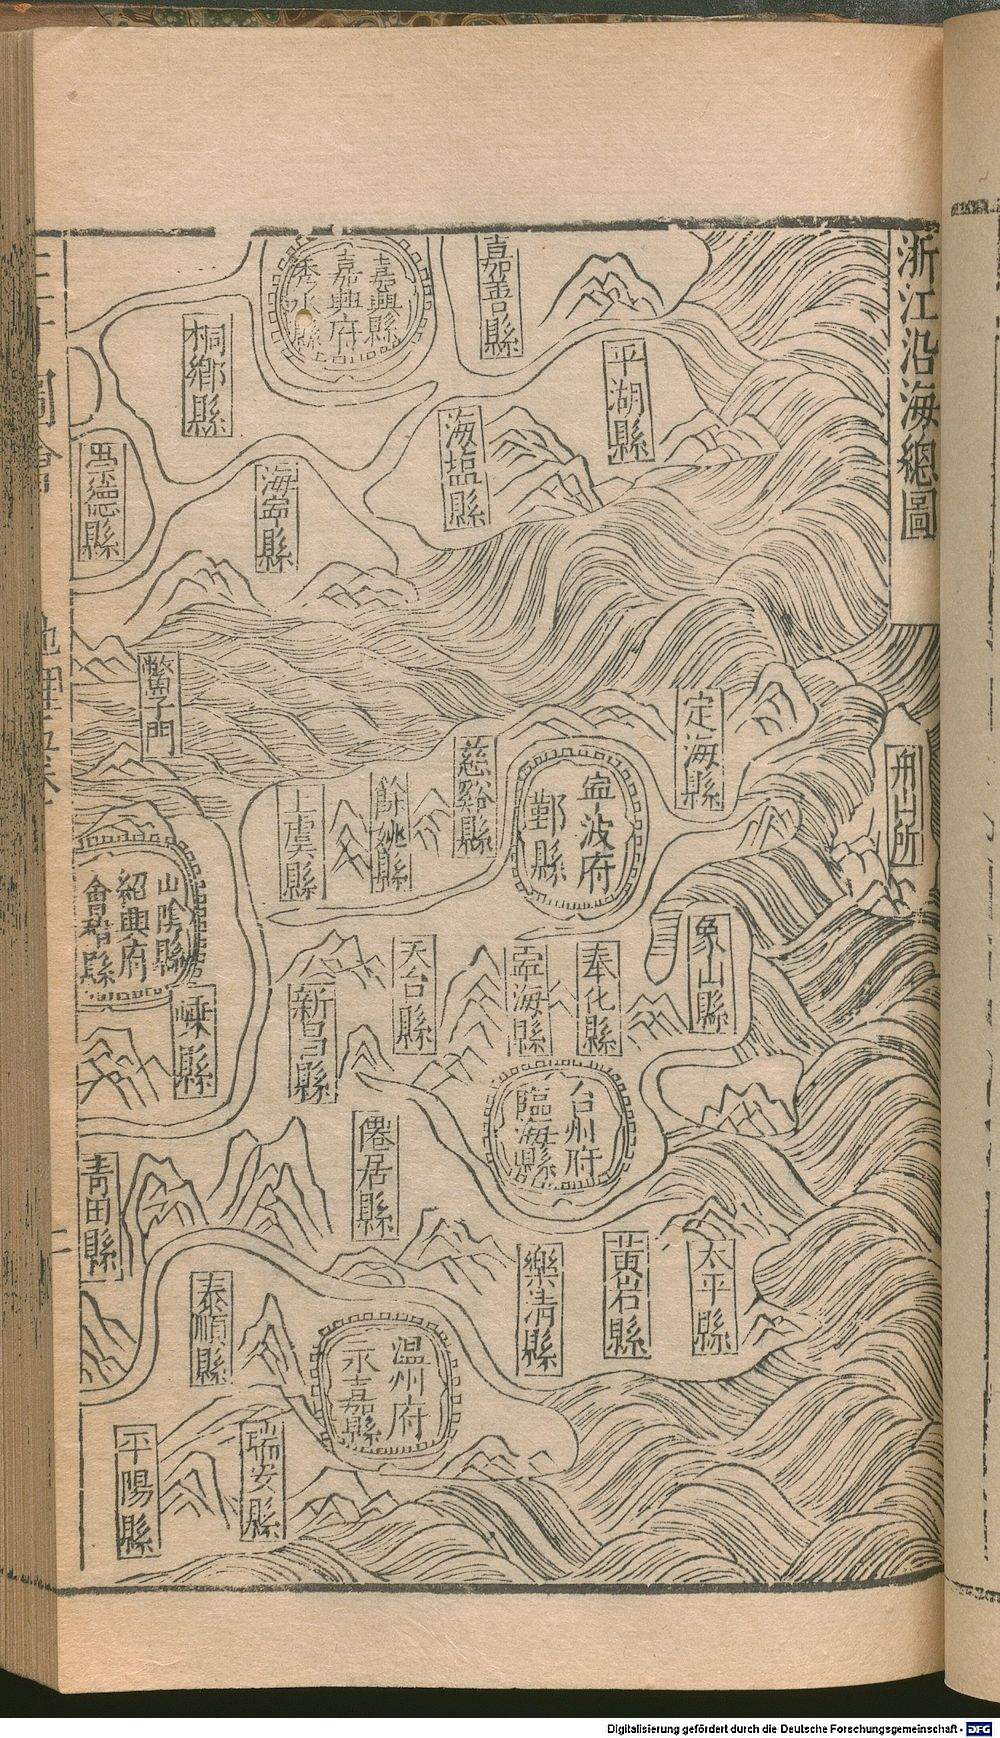 浙江沿海總圖
嘉善縣
嘉興縣
嘉興府
秀水縣
桐鄉縣
平湖縣
海塩縣
海寧縣
崇德縣
鱉子門
定海縣
舟山所
寧波府
鄞縣
慈谿縣
餘姚縣
上虞縣
山陰縣
紹興府
會稽縣
嵊縣
象山縣
奉化縣
寧海縣
天台縣
新昌縣
台州府
臨海縣
僊居縣
青田縣
太平縣
黄岩縣
樂清縣
泰順縣
温州府
永嘉縣
瑞安縣
平陽縣
Digitalisierung gefördert durch die Deutsche Forschungsgemeinschaft - DFG